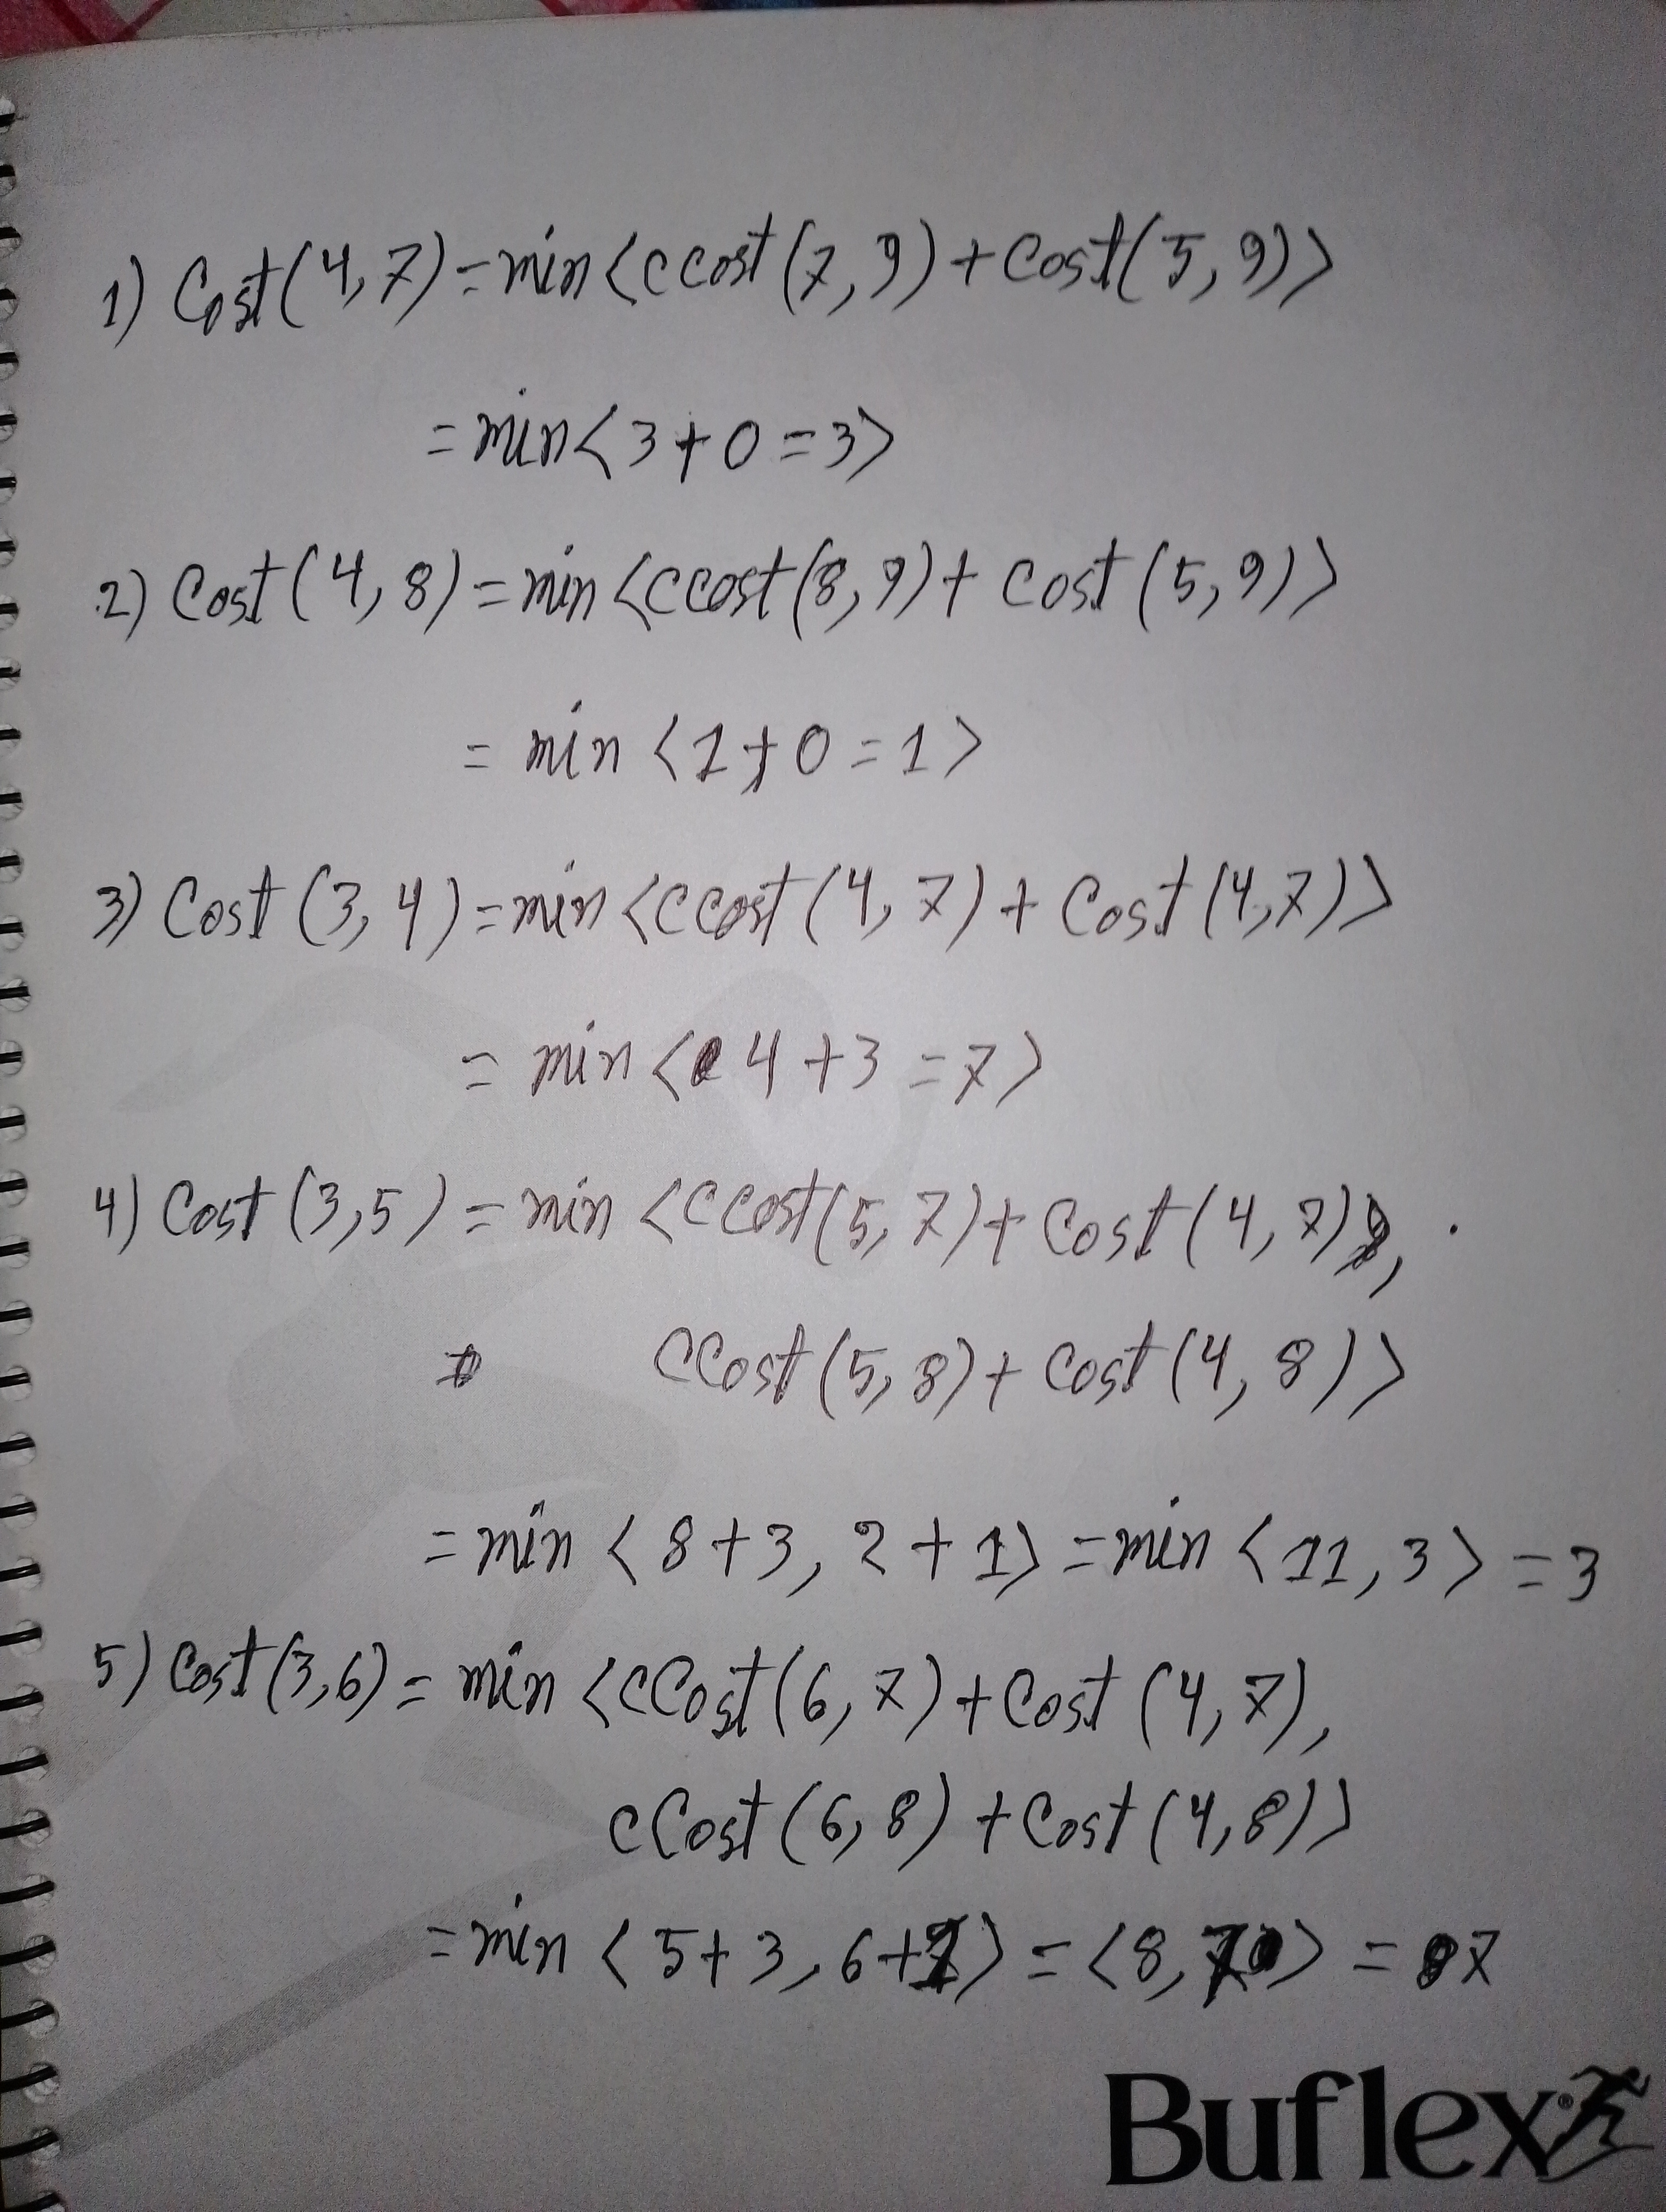 1) Cost(4,7)=min<ccost(7,9)+cost(5,9)>
=min<3+0=3>
2) Cost(4,8)=min<ccost(8,9)+cost(5,9)>
= min <1+0=1>
3) Cost (3,4)=min<ccost(4,7)+Cost(4,7)>
= min <4+3=7>
4) Cost (3,5)=min <ccost(5,7)+Cost(4,7),
ccost(5,8)+cost(4,8)>
=min <8+3, 2+1>=min <11,3>=3
5) Cost(3,6)= min <cCost(6,7)+Cost (4,7),
cCost(6,8)+Cost(4,8)>
=min <5+3, 6+1>=<8, 7>= 7
Buflex®